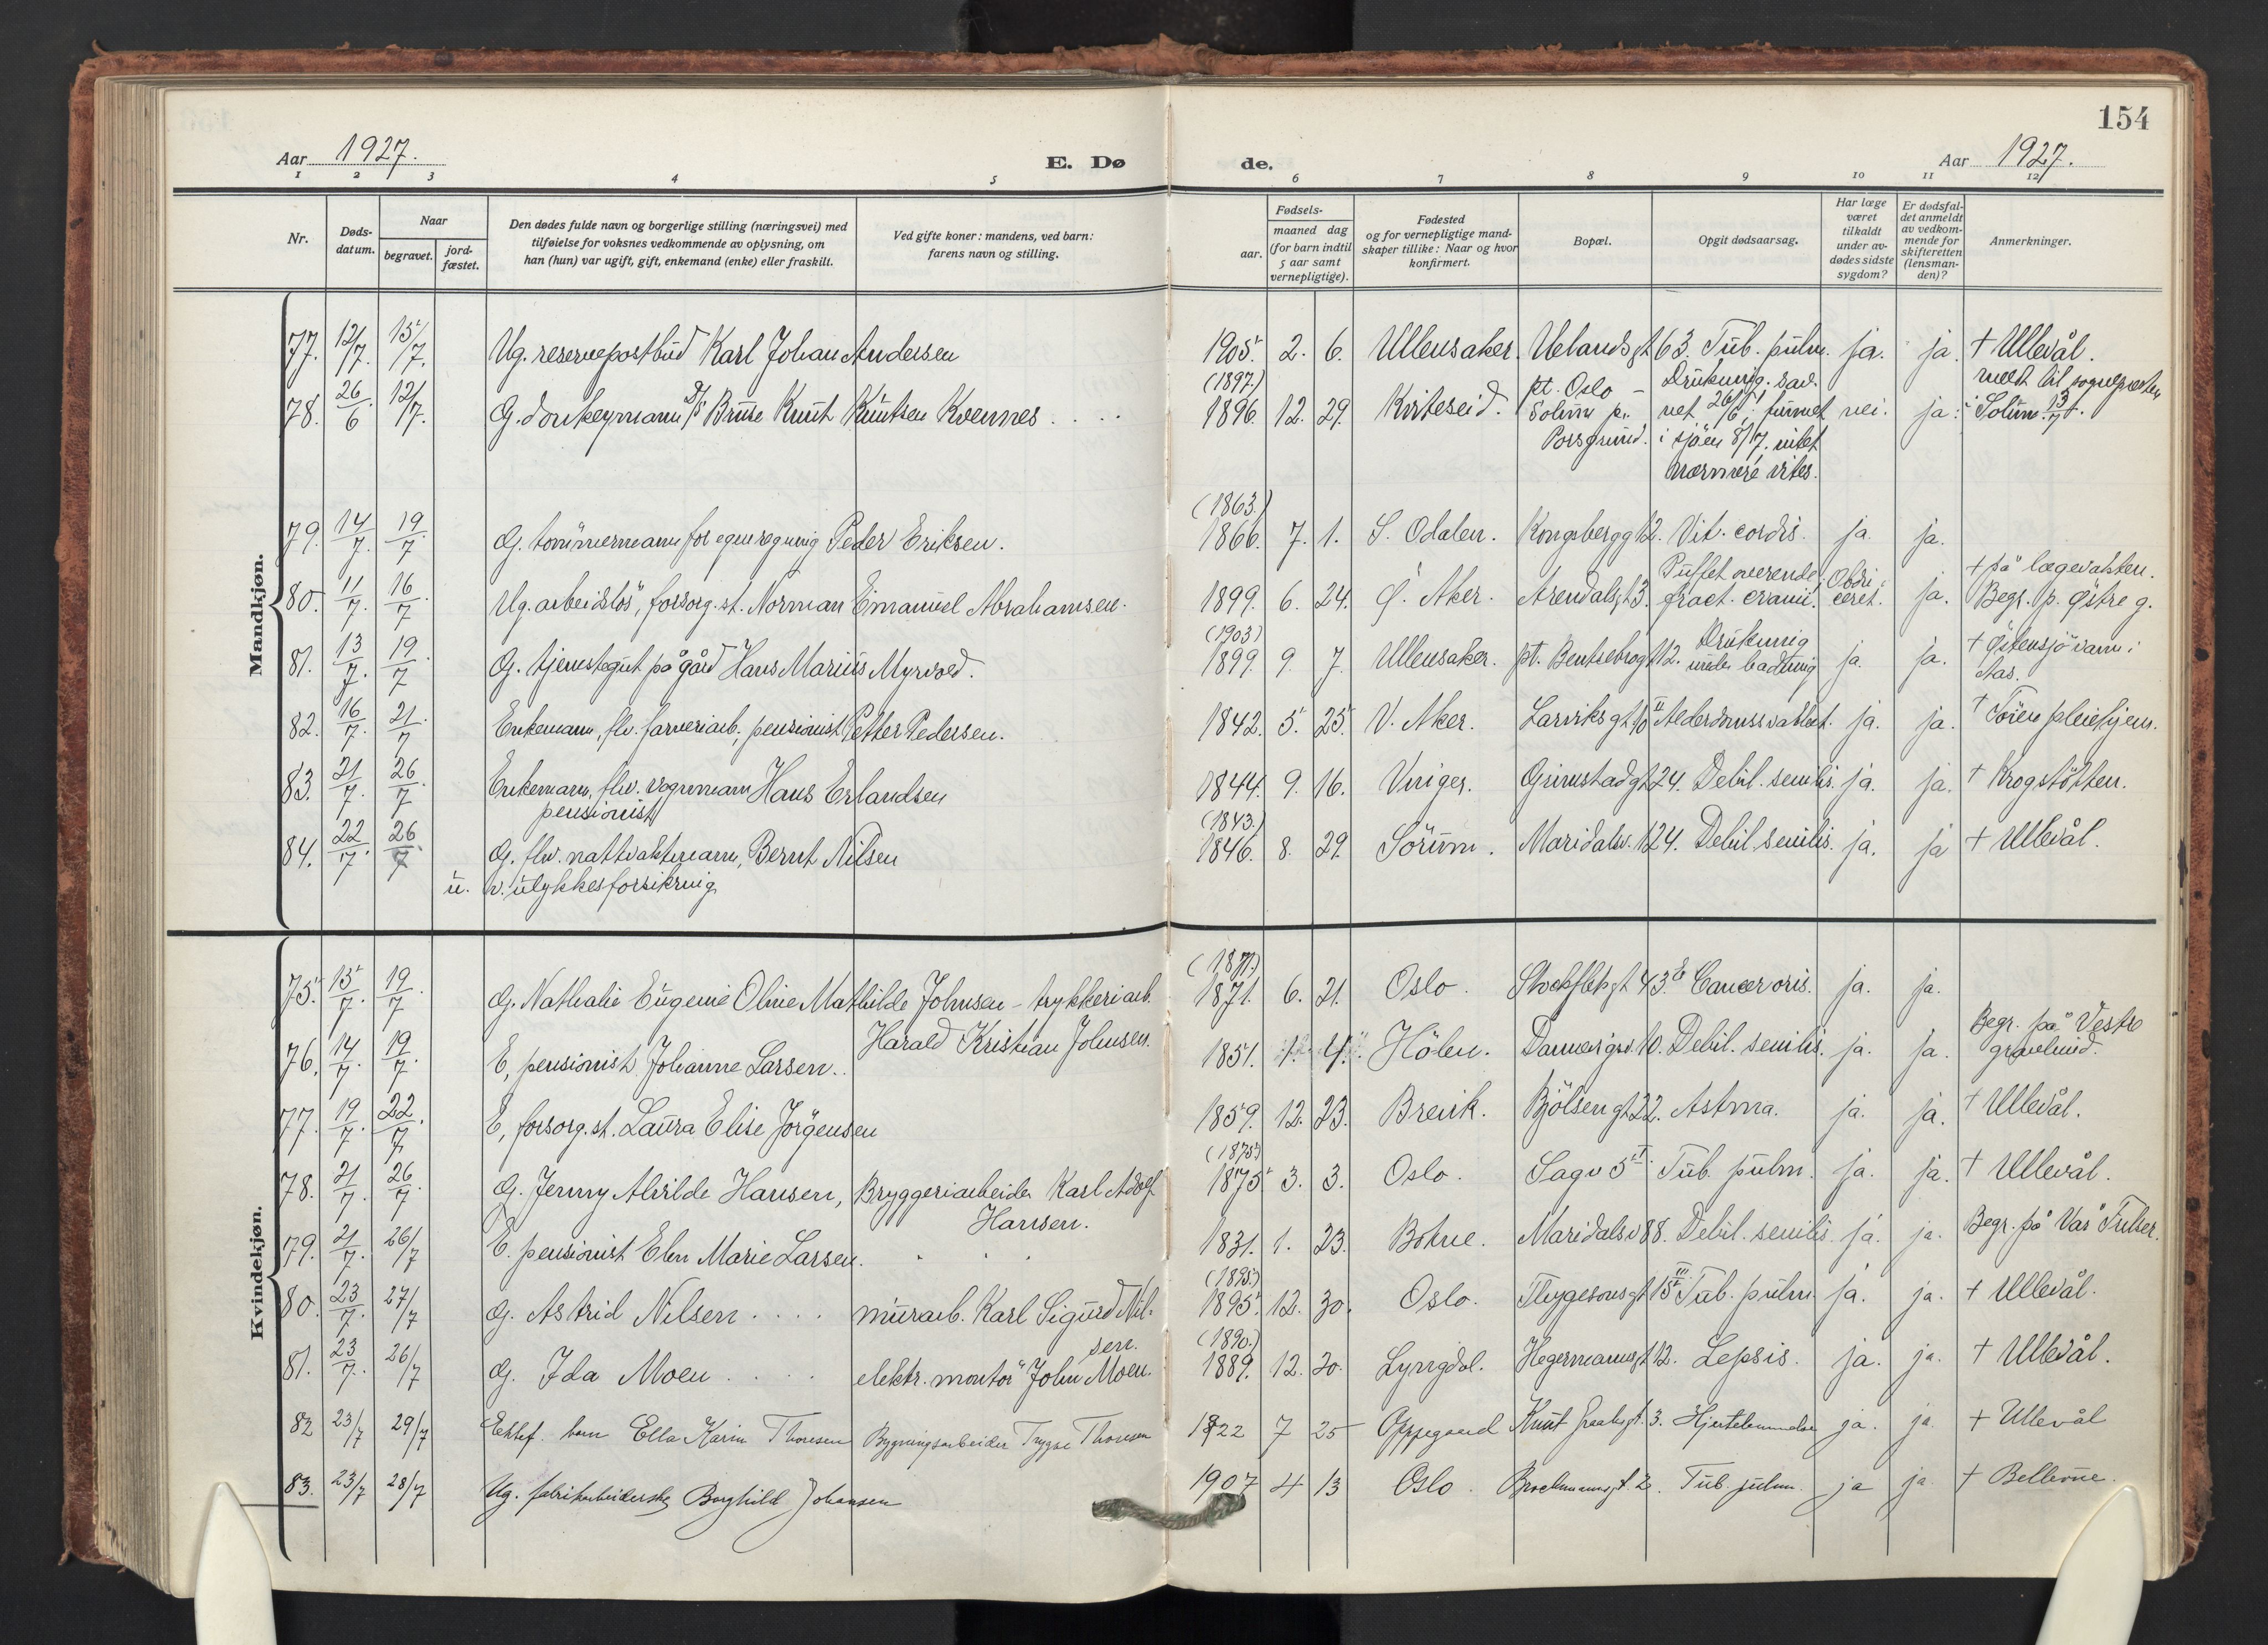 154
Aar 1927. E. Dø de. Aar 1927.
1 2 3 4 5 6 7 8 9 10 11 12
Nr. Døds-datum. Naar begravet. jord-fæstet. Den dødes fulde navn og borgerlige stilling (næringsvei) med tilføielse for voksnes vedkommende av oplysning, om han (hun) var ugift, gift, enkemand (enke) eller fraskilt. Ved gifte koner: mandens, ved barn: farens navn og stilling. Fødsels- aar. maaned dag (for barn indtil 5 aar samt vernepligtige). Fødested og for vernepligtige mandskaper tillike: Naar og hvor konfirmert. Bopæl. Opgit dødsaarsag. Har læge været tilkaldt under avdødes sidste sygdom? Er dødsfaldet anmeldt av vedkommende for skifteretten (lensmanden)? Anmerkninger.
Mandkjøn.
77. 12/7. 15/7. Ug. reservepostbud Karl Johan Andersen 1905. 2. 6. Ullensaker. Uelandsgt 63. Tub. pulm. ja. ja. + Ullevål.
78. 26/6. 12/7. G. donkeymann D/S Bruse Knut Knutsen Kvennes . . . (1897.) 1896. 12. 29. Kviteseid. pt. Oslo – Solum pr. Porsgrund. Drukning. savnet 26/6; funnet i sjöen 8/7, intet nærmere vites. nei. ja. meldt til sognepresten Solum 13/7 t.
79. 14/7. 19/7 G. tömmermann for egen regning Peder Eriksen. (1863.) 1866. 7. 1. S. Odalen. Kongsberggt 2. Vit. cordis. ja. ja.
80. 11/7. 16/7 Ug. arbeidslös, forsorg. st. Norman Emanuel Abrahamsen. 1899. 6. 24. Ö. Aker. Arendalsgt 3. Puffet overende; fract. cranii. Obduceret. ja. + på lægevakten. Begr. p. Östre g.
81. 13/7. 19/7 G. tjenestegut på gård Hans Marius Myrvold. (1903) 1899. 9. 7. Ullensaker. pt. Bentsebrogt 12. Drukning under badning ja. ja. + Östensjövann i Aas.
82. 16/7. 21/7 Enkemann, flv. farveriarb., pensionist Petter Pedersen. 1842. 5. 25. V. Aker. Larviksgt 10 II Alderdomssvakhet. ja. ja. + Töien pleiehjem.
83. 21/7. 26/7 Enkemann, flv. vognmann Hans Erlandsen pensionist 1844. 9. 16. Vinger. Grimstadgt 24. Debil. senilis. ja. ja. + Krogstötten.
84. 22/7. 26/7. G. flv. nattvaktmann, Bernt Nilsen (1843.) 1846. 8. 29. Sörum. Maridalsv. 124. Debil. senilis. ja. ja + Ullevål.
u. v. ulykkesforsikring
Kvindekjøn.
75. 15/7. 19/7 G. Nathalie Eugenie Oline Mathilde Johnsen – trykkeriarb. Harald Kristian Johnsen. (1871.) 1871. 6. 21. Oslo. Stockfletsgt 43. E Cancer oris. ja. ja.
76. 14/7 19/7. E, pensionist Johanne Larsen.. 1851. 1. 4. Hölen. Damergrd. 10. Debil. senilis. ja. ja. Begr. på Vestre gravlund.
77. 19/7. 22/7. E, forsorg. st. Laura Elise Jörgensen 1859. 12. 23. Brevik. Bjölsengt 22. Astma. ja. ja. + Ullevål.
78. 21/7. 26/7. G. Jenny Alvilde Hansen, Bryggeriarbeider Karl Adolf Hansen. (1875) 1875 3. 3. Oslo. Sagv 5 II. Tub. pulm. ja. ja. + Ullevål.
79. 21/7. 26/7 E. pensionist Elen Marie Larsen. 1831. 1. 23. Bokne. Maridalsv 88. Debil. senilis ja. ja. Begr. på Vår Frelser.
80. 23/7. 27/7 G. Astrid Nilsen . . . . murarb. Karl Sigurd Nilsen. (1895.) 1895. 12. 30. Oslo. Thygesonsgt 15 III Tub. pulm. ja. ja. + Ullevål.
81. 23/7. 26/7 G. Ida Moen . . . . elektr. montör John Moen. (1890.) 1889. 12. 20. Lyngdal. Hegermannsgt 12. Sepsis. ja. ja. + Ullevål.
82 23/7 29/7 Ektef. barn Ella Karin Thoresen Bygningsarbeider Trygve Thoresen 1922 7 25 Oppegaard Knut Graahsgt. 3. Hjertelammelse ja. ja + Ullevål
83. 23/7 28/7 Ug. fabrikarbeiderske Borghild Johansen 1907 4 13 Oslo. Brochmannsgt. 2. Tub. pulm. ja ja + Bellevue.